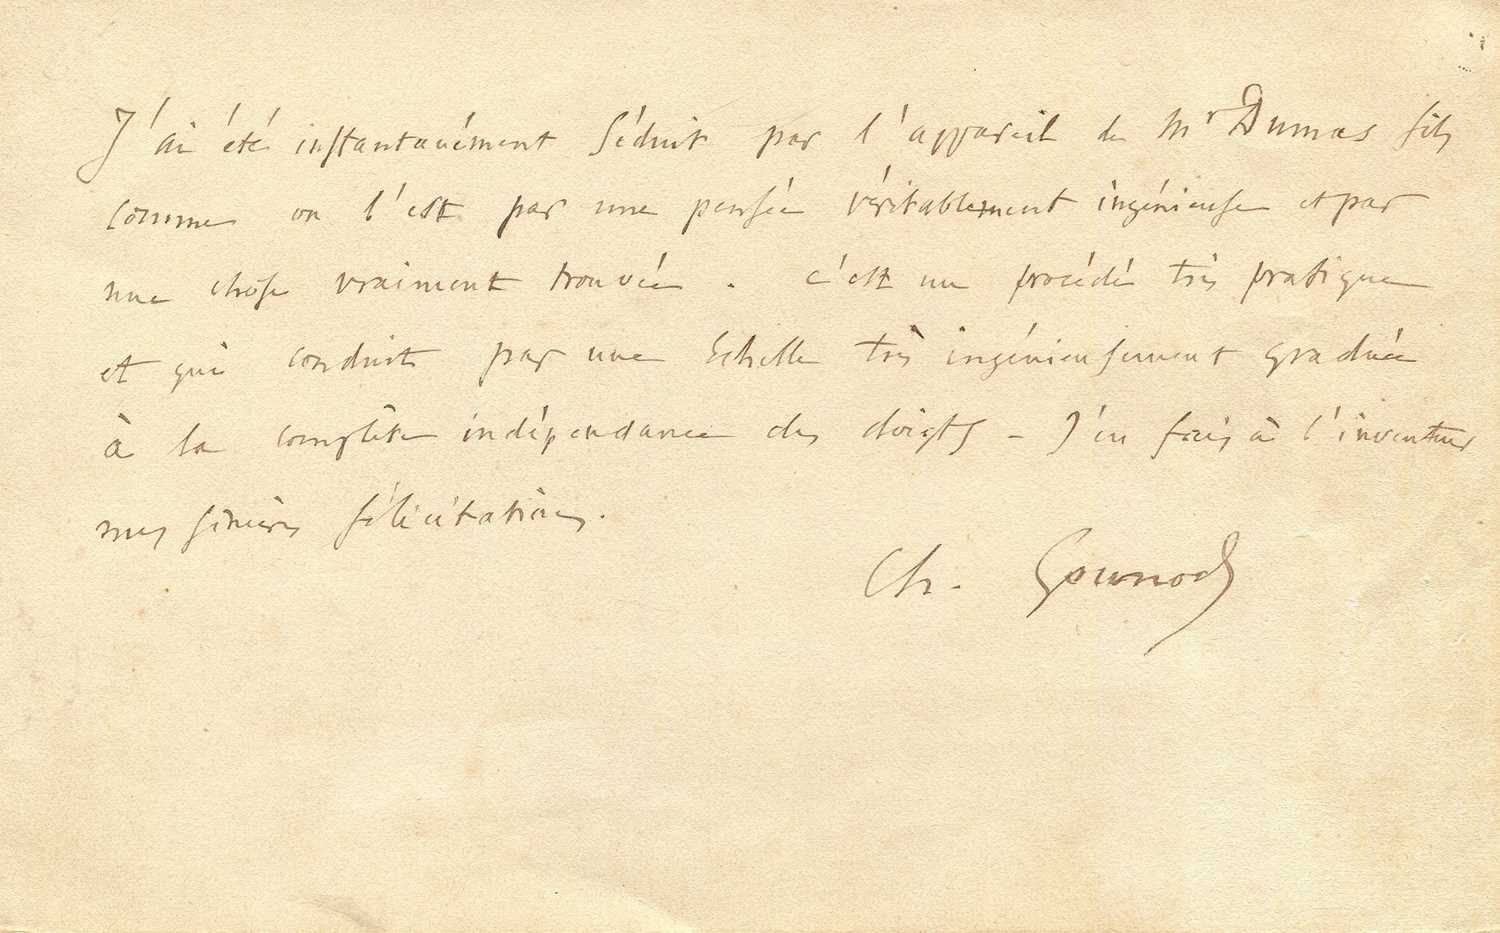 J'ai été instantanément séduit par l'appareil de Mr Dumas fils
comme on l'est par une pensée véritablement ingénieuse et par
une chose vraiment trouvée. c'est un procédé très pratique
et qui conduit par une Echelle très ingénieusement graduée
à la complète indépendance des doigts - J'en fais à l'inventeur
mes sincères félicitations.
Ch. Gounod